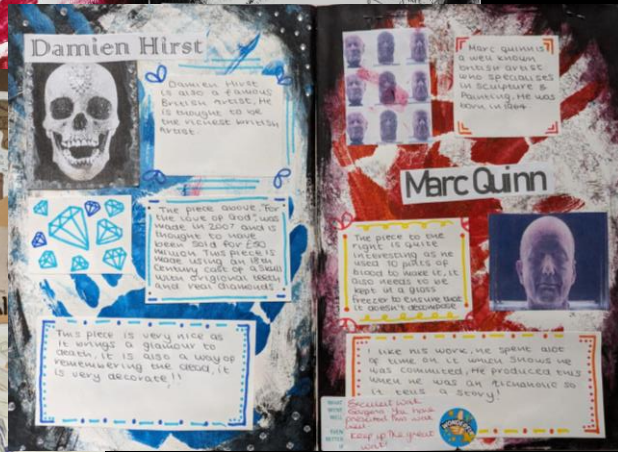 Damien Hirst
Damien Hirst
is also a famous
British Artist. He
is thought to be
the richest British
Artist.
The piece above, "For
the love of God", was
made in 2007 and is
thought to have
been sold for £50
million. This piece is
made using an 18th
century cast of a skull
with original teeth
and real diamonds
This piece is very nice as
it brings a glamour to
death, it is also a way of
remembering the dead, it
is very decorate!!
Marc quinn is
a well known
british artist
who specialises
in sculpture &
Painting. He was
born in 1964.
Marc Quinn
The piece to the
right is quite
interesting as he
used 10 pints of
blood to make it, it
also needs to be
kept in a glass
freezer to ensure that
it doesn't decompose
I like his work, he spent alot
of time on it which shows he
was commited, he produced this
when he was an alchaholic so
it tells a story!
WHAT
WENT
WELL
EVEN
BETTER
IF
Excellent work
you have
presented this work
well.
Keep up the great
work!